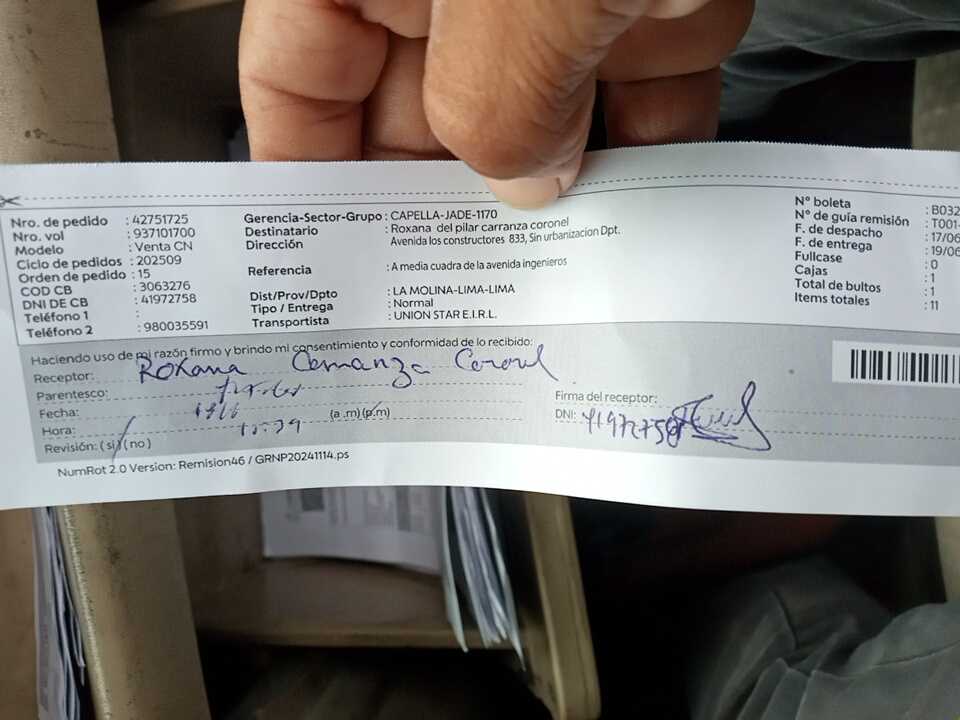 Nro. de pedido : 42751725
Nro. vol : 937101700
Modelo : Venta CN
Ciclo de pedidos : 202509
Orden de pedido : 15
COD CB : 3063276
DNI DE CB : 41972758
Teléfono 1 :
Teléfono 2 : 980035591
Gerencia-Sector-Grupo : CAPELLA-JADE-1170
Destinatario : Roxana del pilar carranza coronel
Dirección Avenida los constructores 833, Sin urbanizacion Dpt.
Referencia : A media cuadra de la avenida ingenieros
Dist/Prov/Dpto : LA MOLINA-LIMA-LIMA
Tipo / Entrega : Normal
Transportista : UNION STAR E.I.R.L.
N° boleta : B032
N° de guía remisión : T001-
F. de despacho : 17/06
F. de entrega : 19/06
Fullcase : 0
Cajas : 1
Total de bultos : 1
Items totales : 11
Haciendo uso de mi razón firmo y brindo mi consentimiento y conformidad de lo recibido:
Receptor: Roxana Carranza Coronel
Parentesco:
Fecha:
Hora: (a.m) (p.m)
Revisión: ( si ) ( no )
Firma del receptor:
DNI: 41972758
NumRot 2.0 Version: Remision46 / GRNP20241114.ps